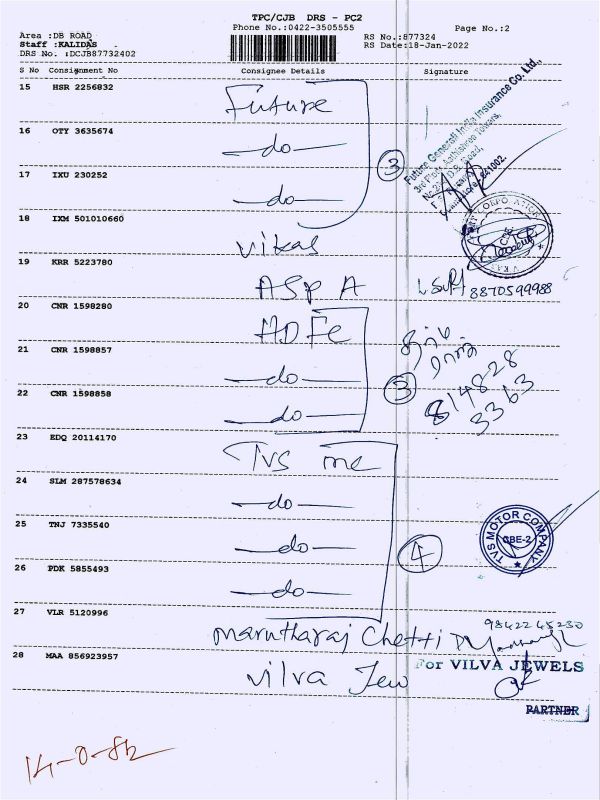 TPC/CJB DRS - PC2
Phone No.:0422-3505555
Page No.:2
Area :DB ROAD
RS No.:877324
Staff :KALIDAS
RS Date:18-Jan-2022
DRS No. :DCJB87732402
S No Consignment No Consignee Details Signature
15 HSR 2256832 Future
16 OTY 3635674 -do-
17 IXU 230252 -do-
3
Future Generali India Insurance Co. Ltd.,
3rd Floor,
D.B. Road,
641002.
18 IXM 501010660 Vikas
19 KRR 5223780 ASP A
8870599988
20 CNR 1598280 HDFC
21 CNR 1598857 -do-
22 CNR 1598858 -do-
3
814828
3363
23 EDQ 20114170 TVS mc
24 SLM 287578634 -do-
25 TNJ 7335540 -do-
26 PDK 5855493 -do-
4
TVS MOTOR COMPANY
CBE-2
27 VLR 5120996 Marutharaj Chetti
9842245230
28 MAA 856923957 Vilva Jew
For VILVA JEWELS
PARTNER
14-0-82